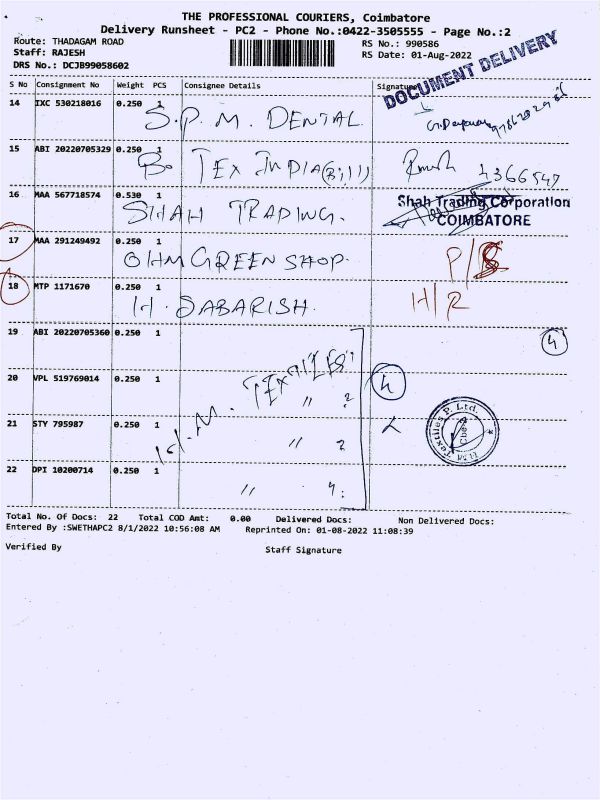 THE PROFESSIONAL COURIERS, Coimbatore
Delivery Runsheet - PC2 - Phone No.:0422-3505555 - Page No.:2
Route: THADAGAM ROAD
RS No.: 990586
Staff: RAJESH
RS Date: 01-Aug-2022
DRS No.: DCJB99058602
DOCUMENT DELIVERY
S No Consignment No Weight PCS Consignee Details Signature
14 IXC 530218016 0.250 1 S.P.M. DENTAL
15 ABI 20220705329 0.250 1 Bo TEX INDIA (Bill) 4366547
16 MAA 567718574 0.530 1 SHAH TRADING. Shah Trading Corporation
COIMBATORE
17 MAA 291249492 0.250 1 OHM GREEN SHOP.
18 MTP 1171670 0.250 1 H. SABARISH. H/R
19 ABI 20220705360 0.250 1 4
20 VPL 519769014 0.250 1 H.M. TEXTILES 4
21 STY 795987 0.250 1 "
22 DPI 10200714 0.250 1 "
Textiles P. Ltd.
Total No. Of Docs: 22 Total COD Amt: 0.00 Delivered Docs: Non Delivered Docs:
Entered By :SWETHAPC2 8/1/2022 10:56:08 AM Reprinted On: 01-08-2022 11:08:39
Verified By Staff Signature